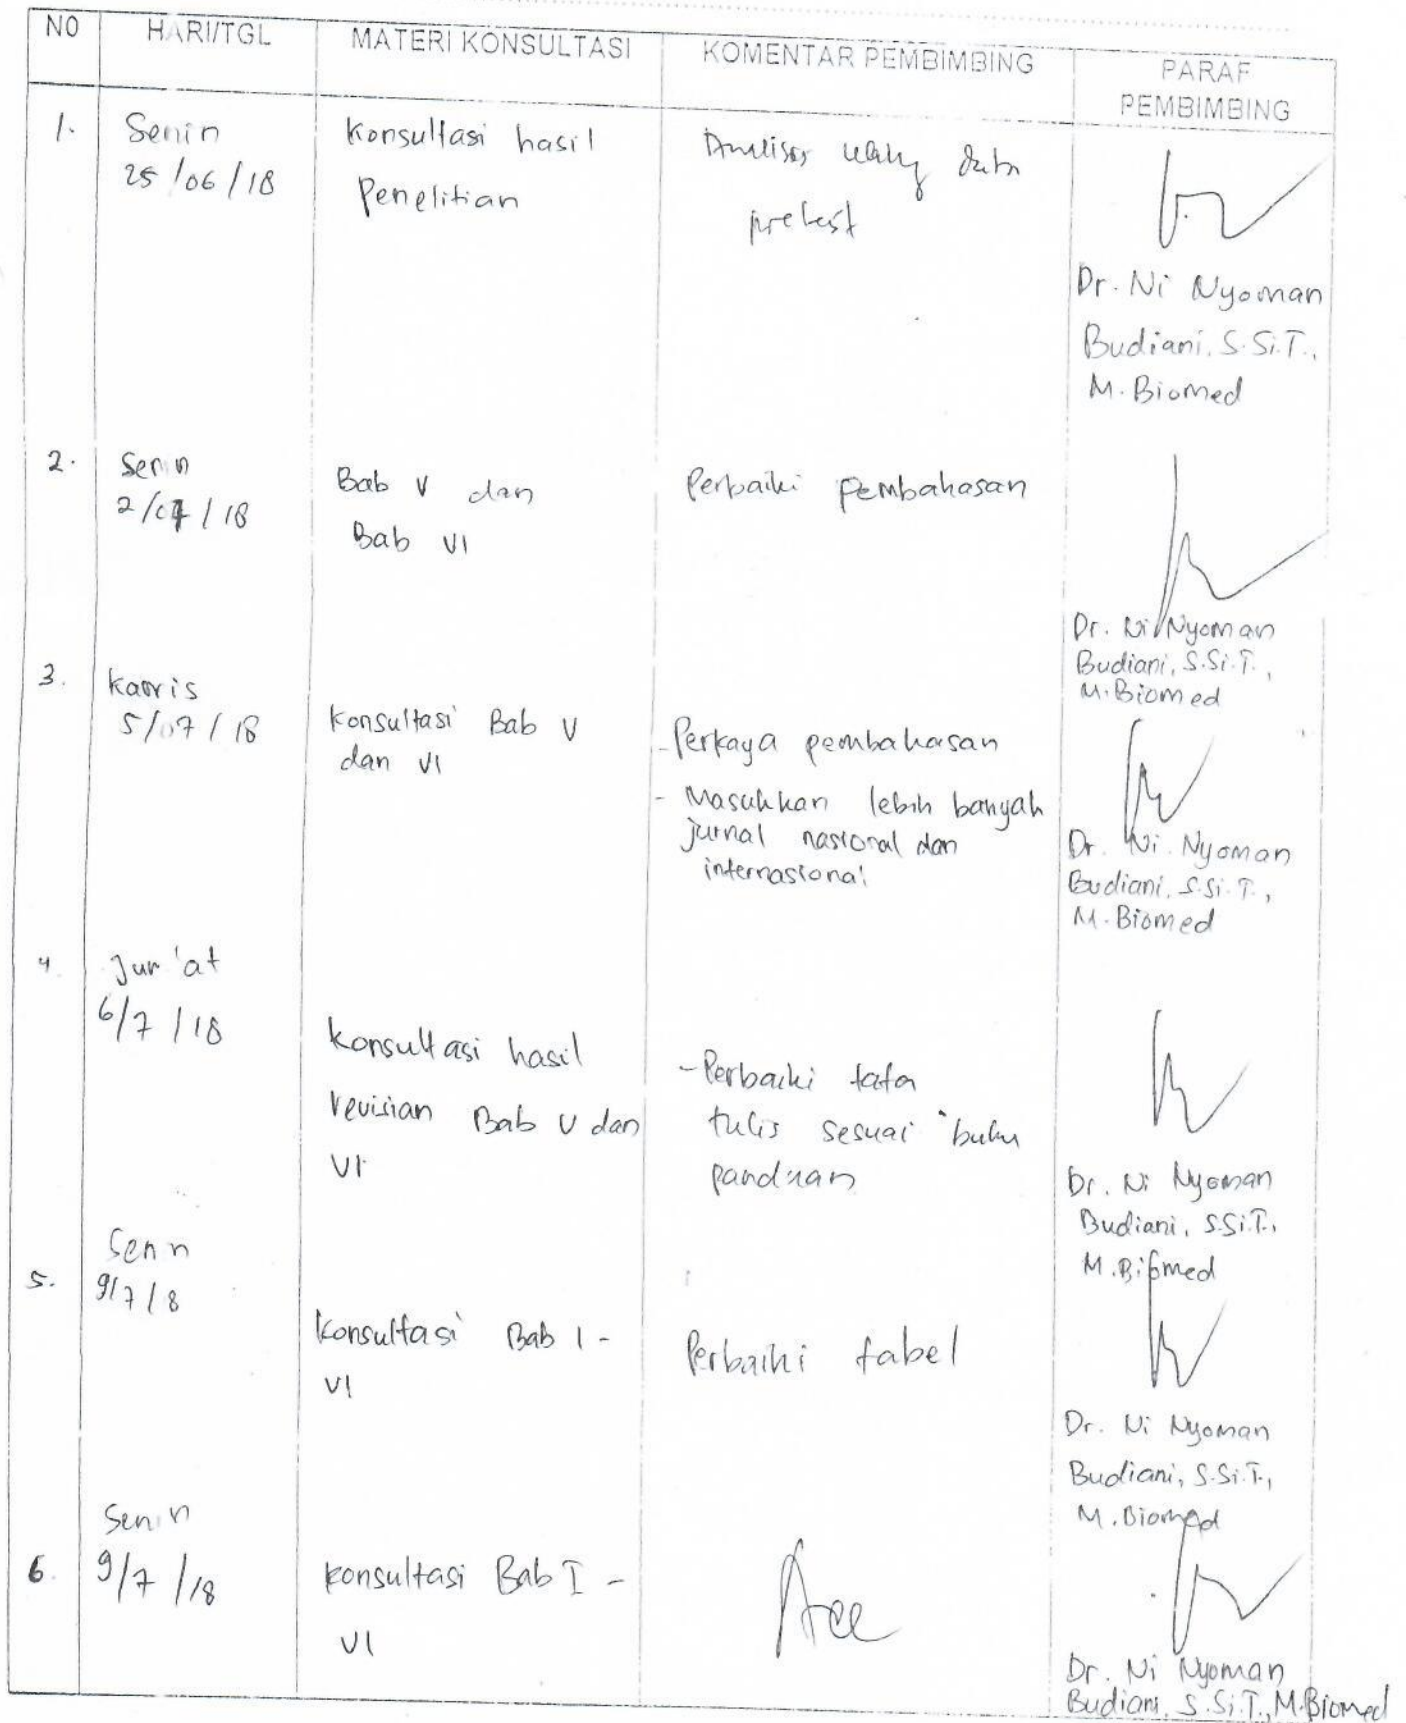 NO HARI/TGL MATERI KONSULTASI KOMENTAR PEMBIMBING PARAF
PEMBIMBING
1. Senin
25/06/18
Konsultasi hasil
Penelitian
data
pretest
Dr. Ni Nyoman
Budiani, S.Si.T.,
M.Biomed
2. Senin
2/07/18
Bab V dan
Bab VI
Perbaiki pembahasan
Dr. Ni Nyoman
Budiani, S.Si.T.,
M.Biomed
3. Kamis
5/07/18
Konsultasi Bab V
dan VI
- Perkaya pembahasan
- Masukkan lebih banyak
jurnal nasional dan
internasional
Dr. Ni Nyoman
Budiani, S.Si.T.,
M.Biomed
4. Jum'at
6/7/18
Konsultasi hasil
revisian Bab V dan
VI
- Perbaiki tata
tulis sesuai buku
panduan
Dr. Ni Nyoman
Budiani, S.Si.T.,
M.Biomed
5. Senin
9/7/18
Konsultasi Bab I -
VI
Perbaiki tabel
Dr. Ni Nyoman
Budiani, S.Si.T.,
M.Biomed
6. Senin
9/7/18
Konsultasi Bab I -
VI
Acc
Dr. Ni Nyoman
Budiani, S.Si.T., M.Biomed